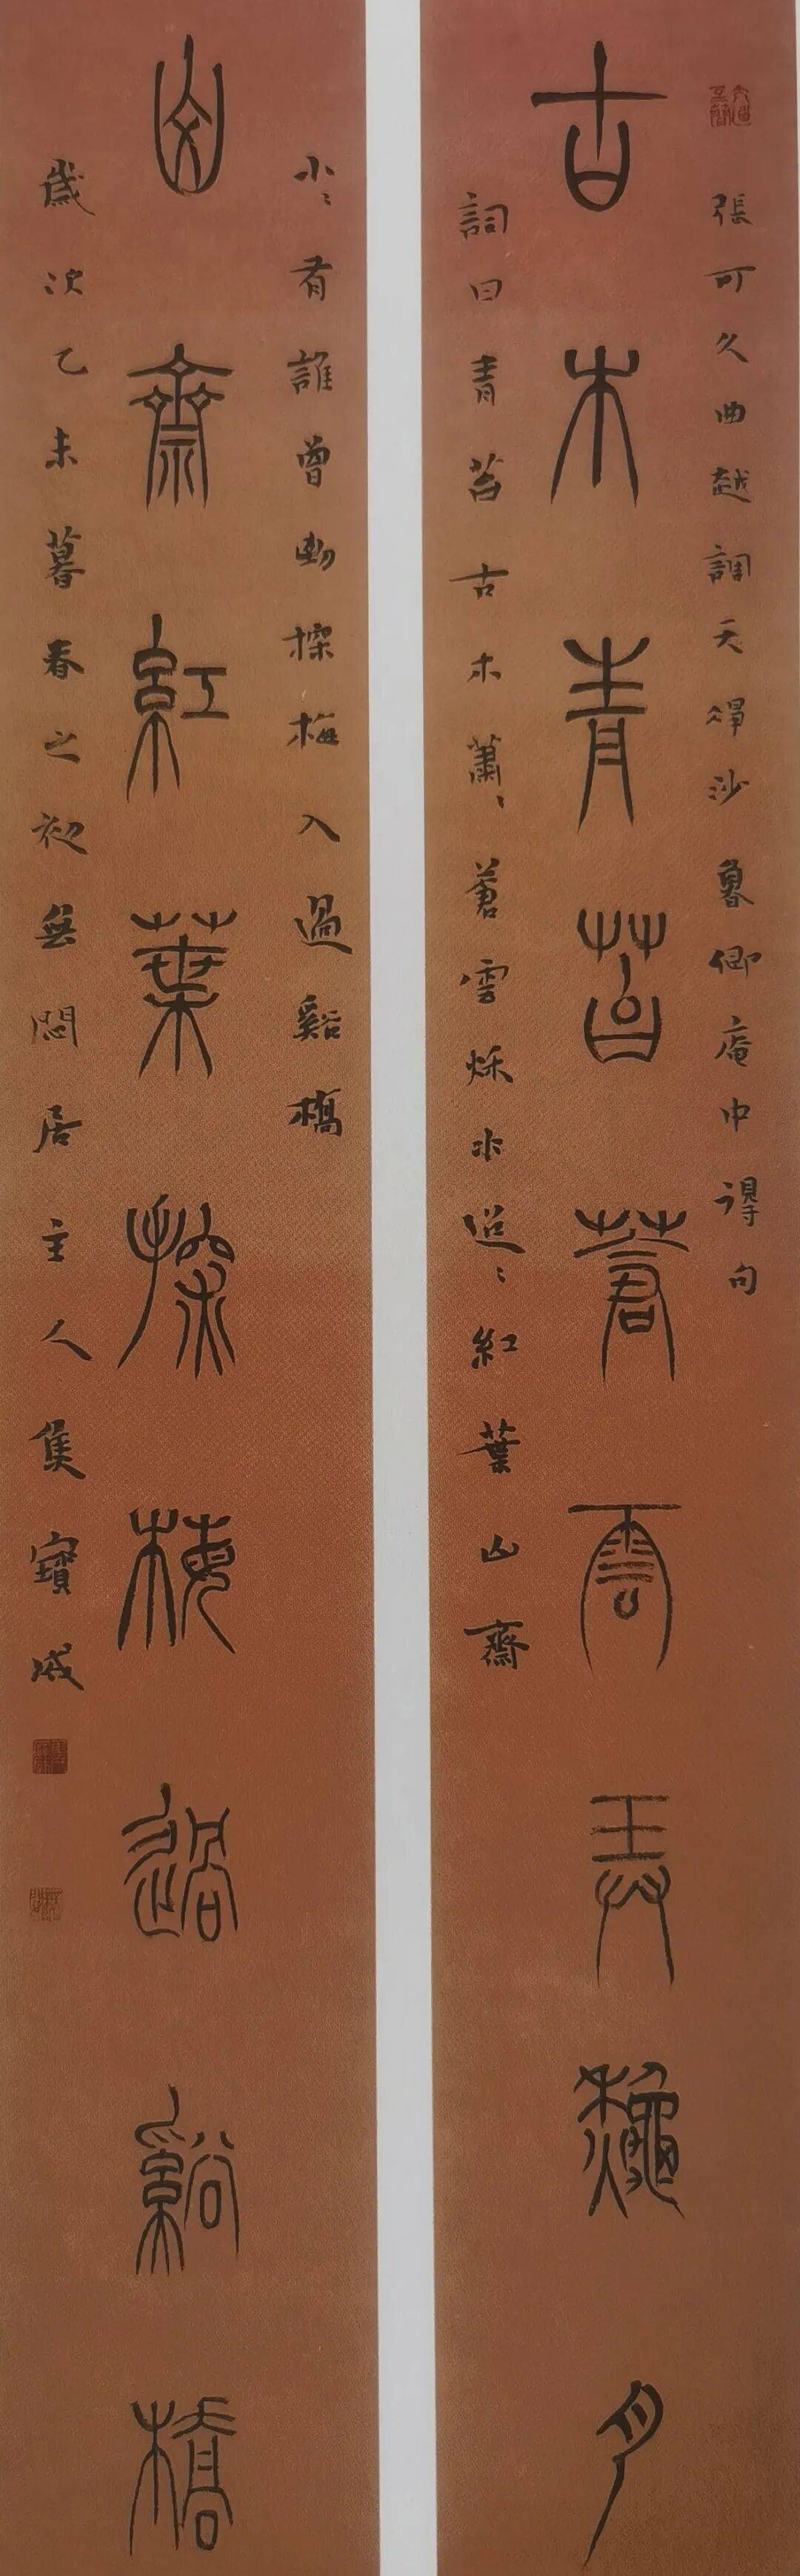 大道至簡
張可久曲越調天淨沙魯卿庵中得句
古木青苔蒼雲弄龝夕
詞曰青苔古木蕭〻蒼雲秋水迢〻紅葉山齋
小〻有誰曾到探梅人過谿橋
山齋紅葉探梅過谿橋
歲次乙未暮春之初無悶居主人集寶